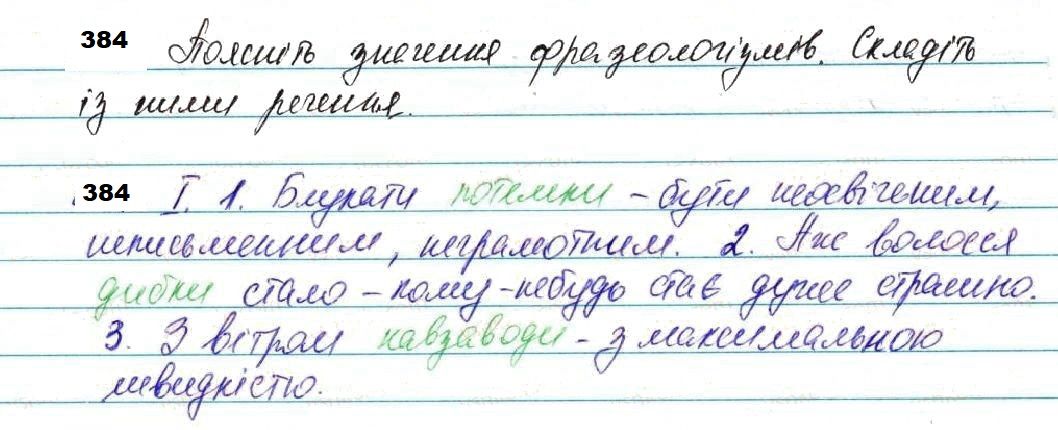 384 Поясніть значення фразеологізмів. Складіть
із ними речення.
384 I. 1. Блукати потемки – бути неосвіченим,
неписьменним, неграмотним. 2. Аж волосся
дибки стало – кому-небудь стає дуже страшно.
3. З вітром навзаводи – з максимальною
швидкістю.